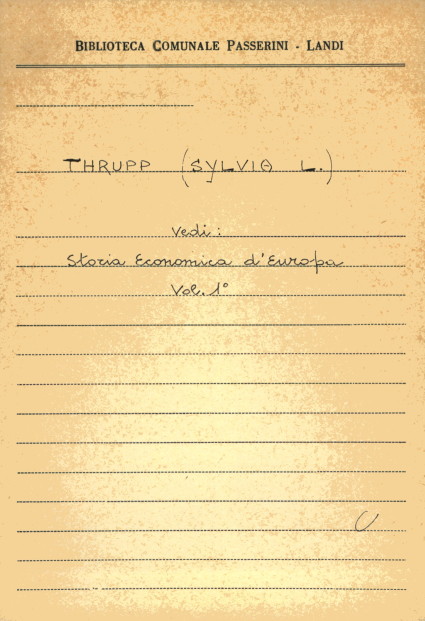 BIBLIOTECA COMUNALE PASSERINI - LANDI
THRUPP (SYLVIA L.)
Vedi:
Storia Economica d'Europa
Vol. 1°